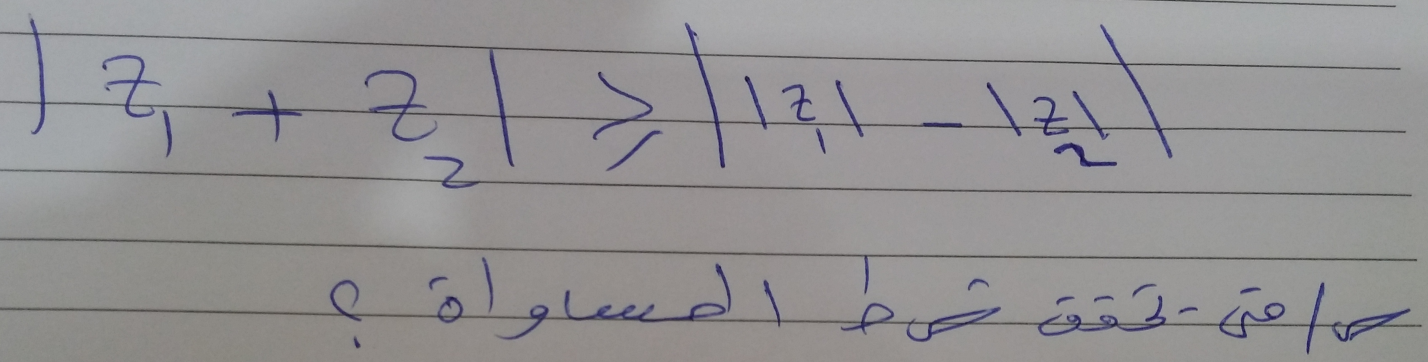 |z₁ + z₂| ≥ ||z₁| - |z₂||
س/ متى تحقق شرط المساواة ؟